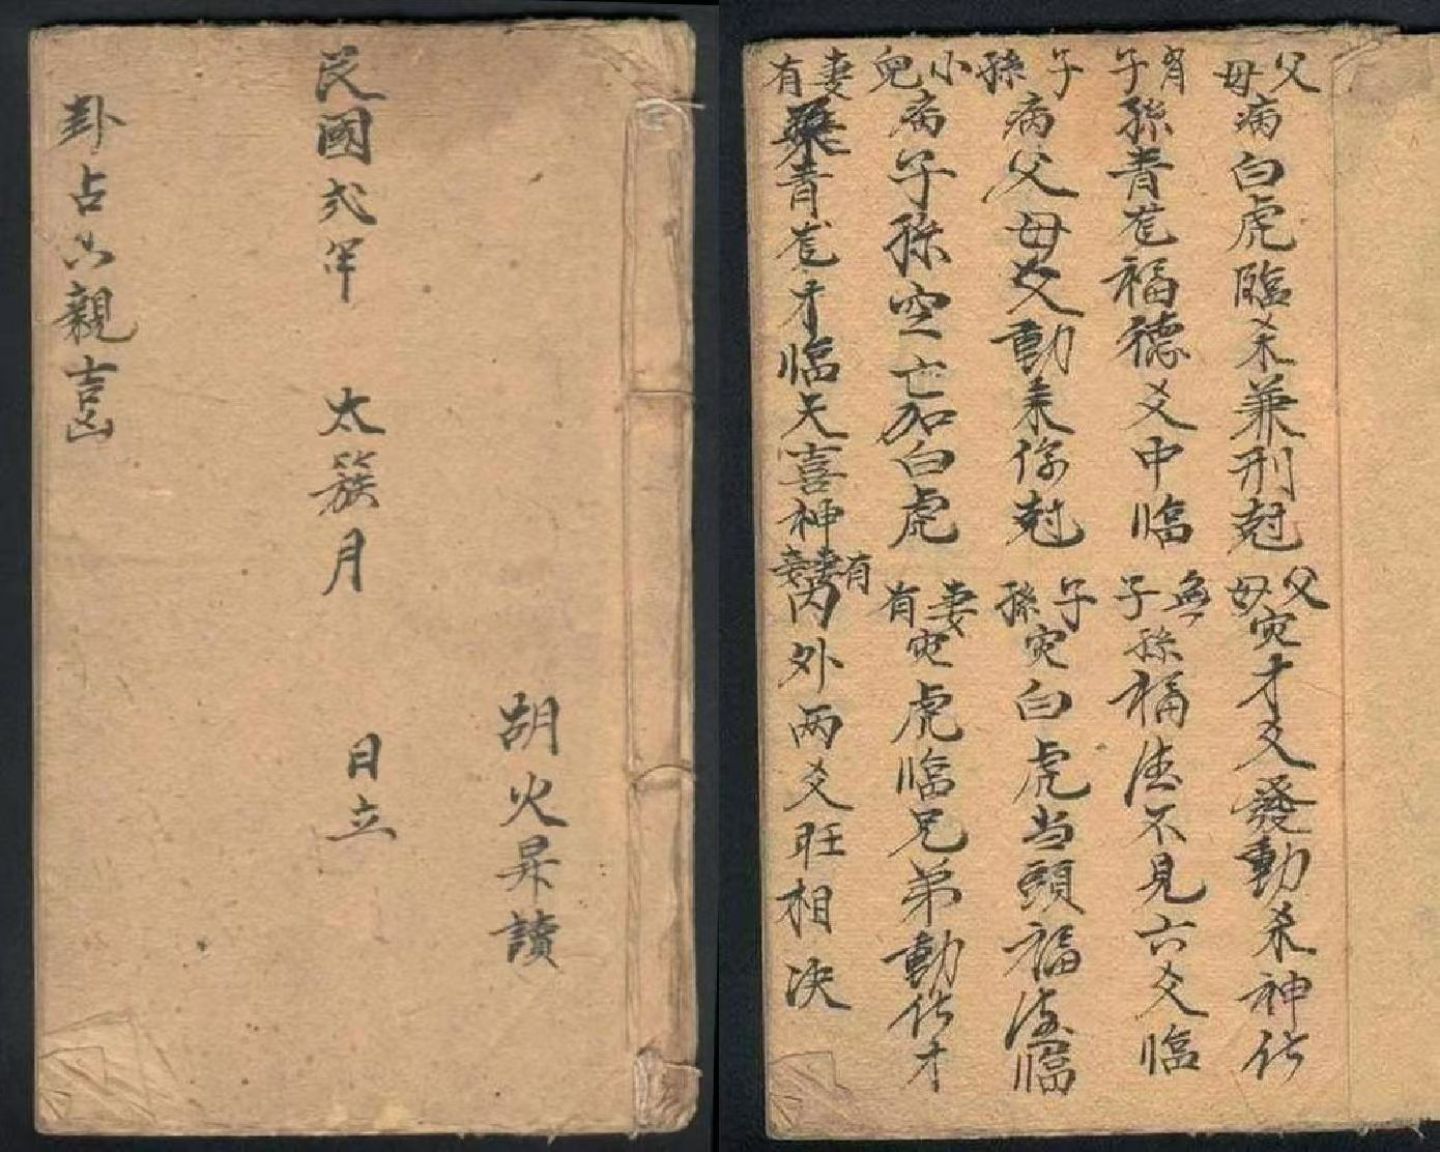 胡火昇讀
民國弍年 太簇月 日立
卦占六親吉凶
父母病白虎臨杀兼刑尅 父母灾才爻發動杀神化
有子孫青龙福德爻中临 無子孫福德不見六爻临
子孫病父母爻動来伤尅 子孫灾白虎当頭福德臨
小兒病子孫空亡加白虎 妻有灾虎临兄弟動化才
妻有青龙才临天喜神 有妻妾内外两爻旺相决